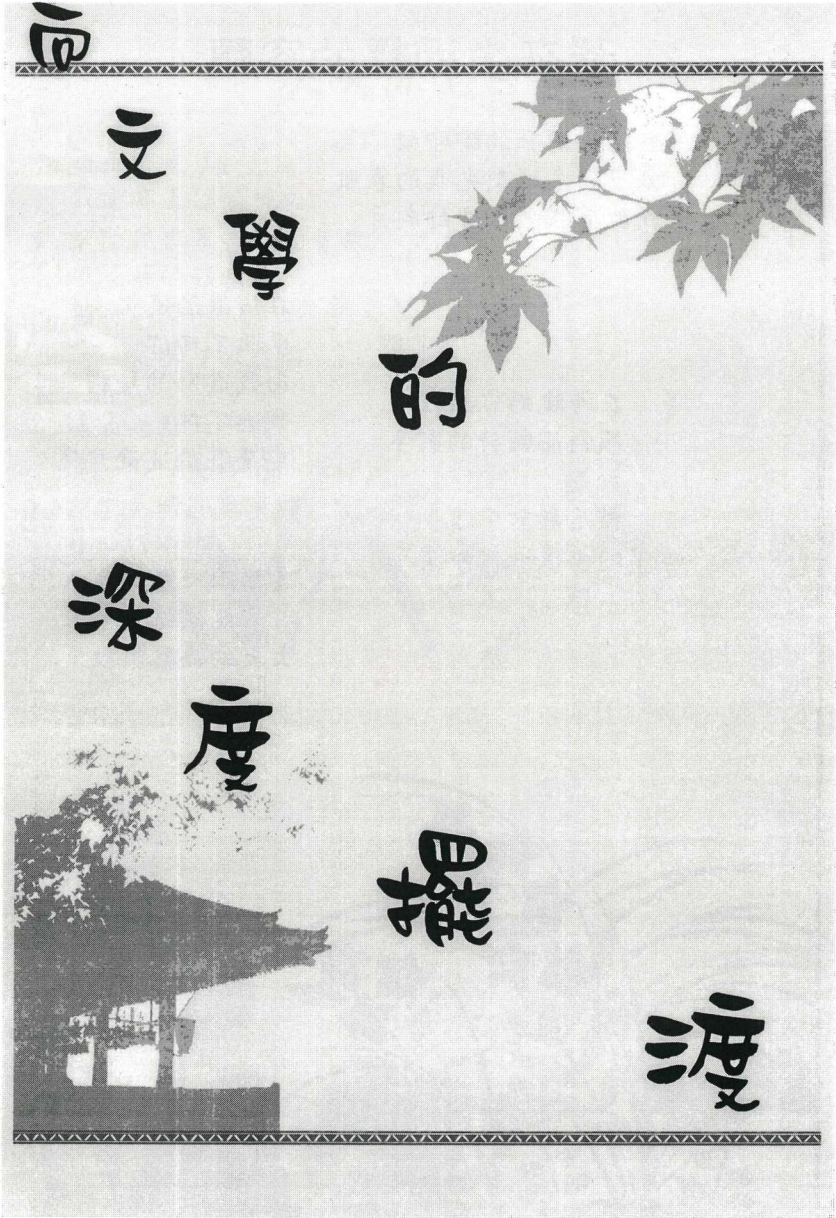 向文學的
深度擺渡